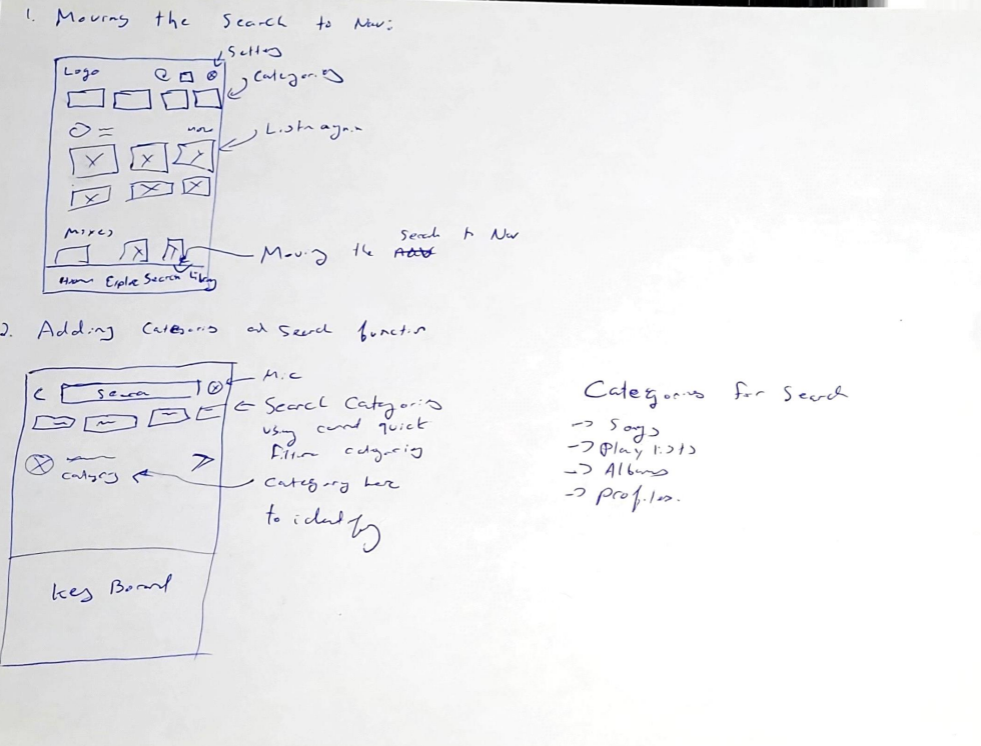 1. Moving the Search to Nav:
Setting
Logo
Categories
Listn again
Mixes
Moving the Search to Nav
Home Explore Search Library
2. Adding Categories and Search function
Mic
Search
Search Categories
using current quick
filter categories
category
Category here
to identify
Key Board
Categories for Search
-> Songs
-> Play lists
-> Albums
-> Profiles.